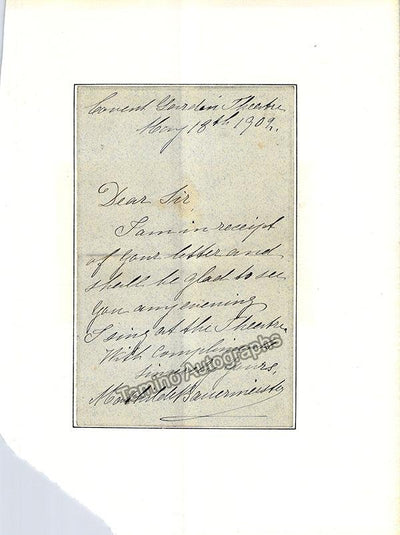 Covent Garden Theatre
May 18th 1902.
Dear Sir,
I am in receipt
of your letter and
shall be glad to see
you any evening
I sing at the Theatre
With Compliments
yours,
Mathilde Bauermeister
Tamino Autographs